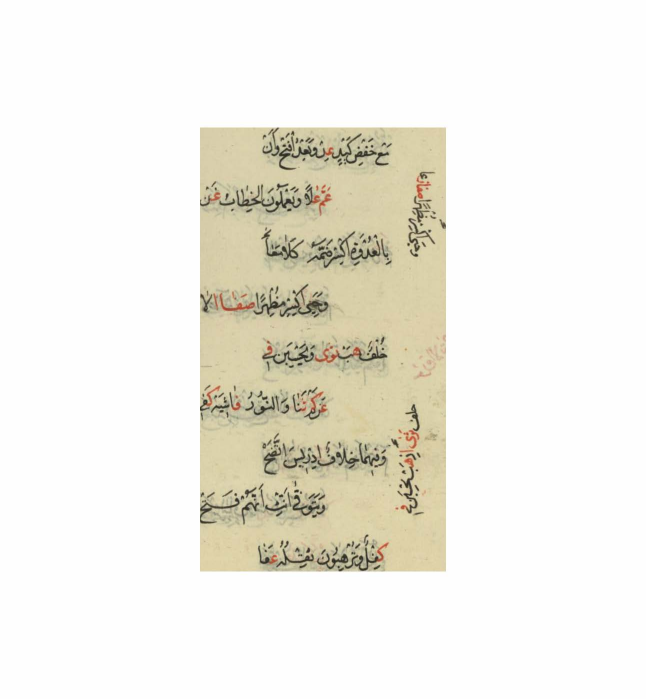 مع خفض كيد مد وبعد افتح وأن
عم علاه ويعملون الخطاب عن
بالعدوة اكسر ضمه كلا معا
وحيي اكسر مظهرا صفا ا
خلف هب نوى ويحسبن في
عن كم ثنا والنور فاشيه كفى
وفيهما خلاف ادريس اتضح
ويتوفى انث انهم فتح
كفل وترهبون ثقله عفا
وحيي اكسر مظهرا صفا زعا
خلف ثوى اذ هب يحسبن في